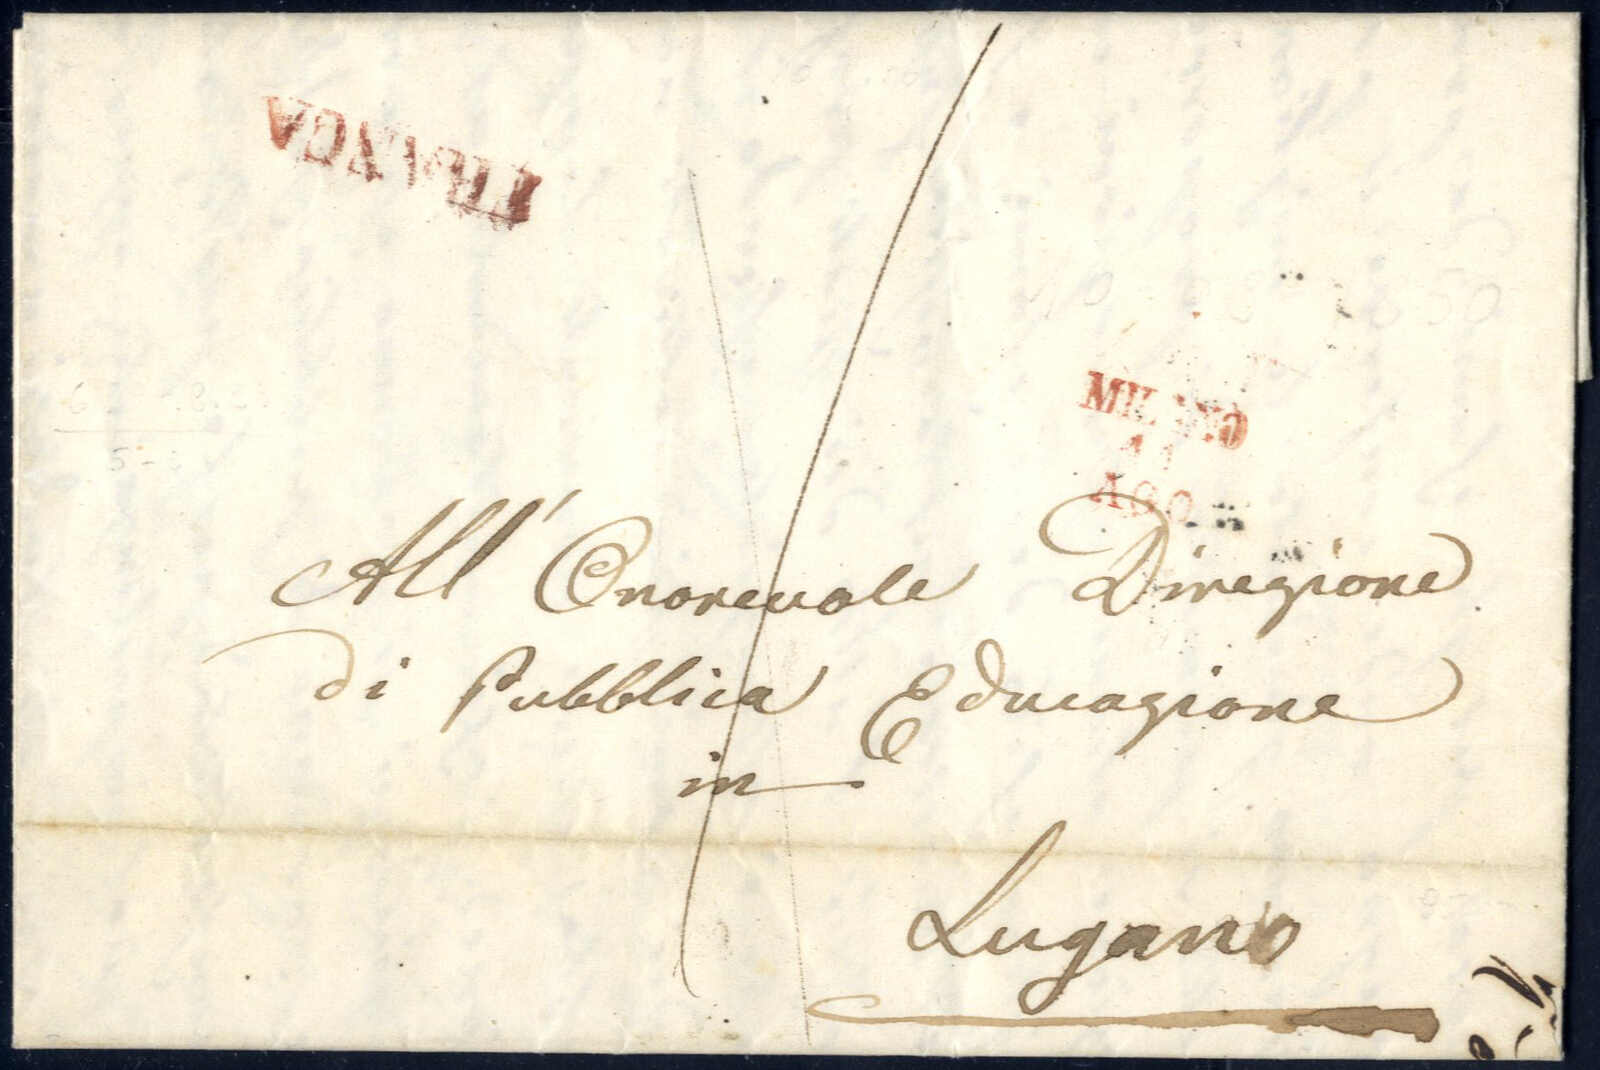 FRANCA
MILANO
AGO
All' Onorevole Direzione
di Pubblica Educazione
in
Lugano